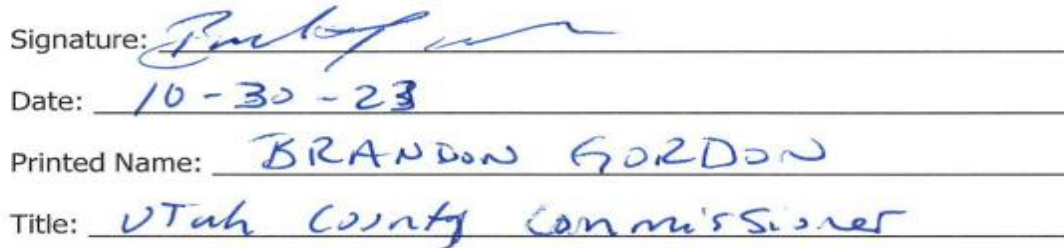 Signature:
Date: 10-30-23
Printed Name: BRANDON GORDON
Title: Utah County Commissioner